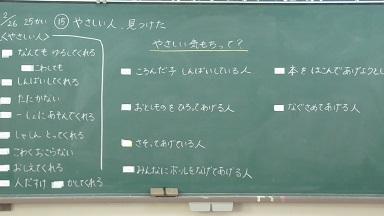 2/26 25かい ⑮ やさしい人、見つけた
<やさしい人>
なんでも ゆるしてくれる
こわしても
しんぱいしてくれる
たたかない
いっしょにあそんでくれる
しゃしん とってくれる
こわくおこらない
おしえてくれる
人だすけ かしてくれる
やさしい気もちって?
ころんだ子 しんぱいしている人
おとしものを ひろってあげる人
さそってあげている人
みんなに ボールをなげてあげる人
本を はこんであげようとし
なぐさめてあげる人